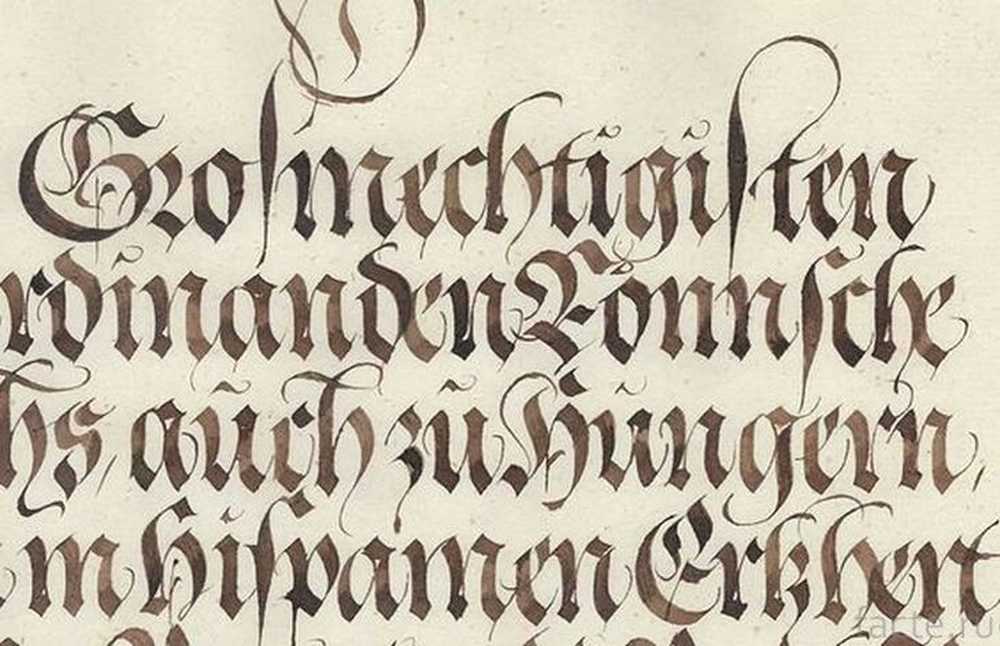 Grosmechtigisten
rdinanden Römischē
hs, auch zů Hungern,
in Hispanien Erkhert